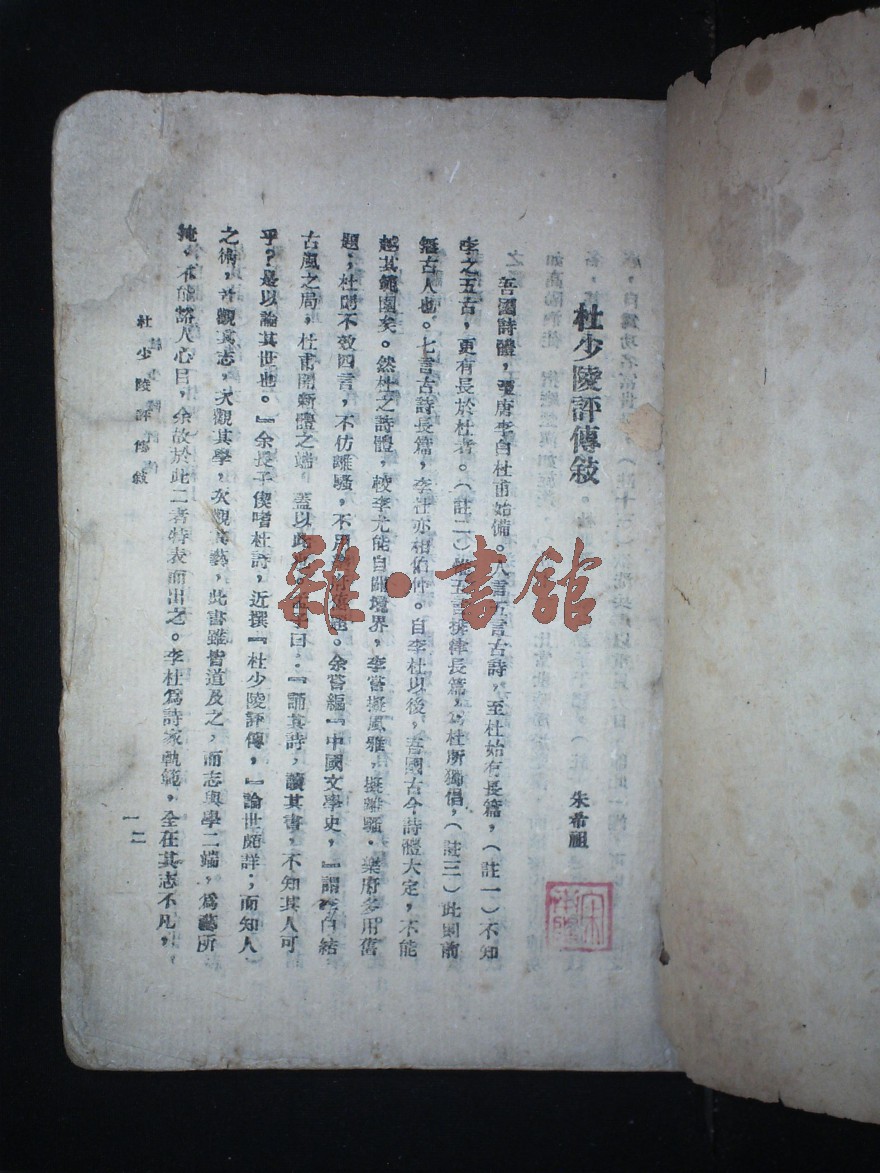 杜少陵評傳敍
朱希祖
吾國詩體，至唐李白杜甫始備。人言五言古詩，至杜始有長篇，（註一）不知
李之五古，更有長於杜者。（註二）惟五言排律長篇，爲杜所獨倡，（註三）此則前
無古人也。七言古詩長篇，李杜亦相伯仲。自李杜以後，吾國古今詩體大定，不能
越其範圍矣。然杜之詩體，較李尤能自闢境界，李嘗擬風雅，擬離騷，樂府多用舊
題；杜則不效四言，不仿離騷，不用題。余嘗編『中國文學史，』謂李白結
古風之局，杜甫開新體之端，蓋以此也。孟子曰：『誦其詩，讀其書，不知其人可
乎？是以論其世也。』余長子偰嗜杜詩，近撰『杜少陵評傳，』論世頗詳；而知人
之術，首觀其志，次觀其學，次觀其藝，此書雖皆道及之，而志與學二端，爲藝所
掩，不能豁人心目，余故於此二者特表而出之。李杜爲詩家軌範，全在其志不凡，
杜少陵評傳敍
一二
雜·書館